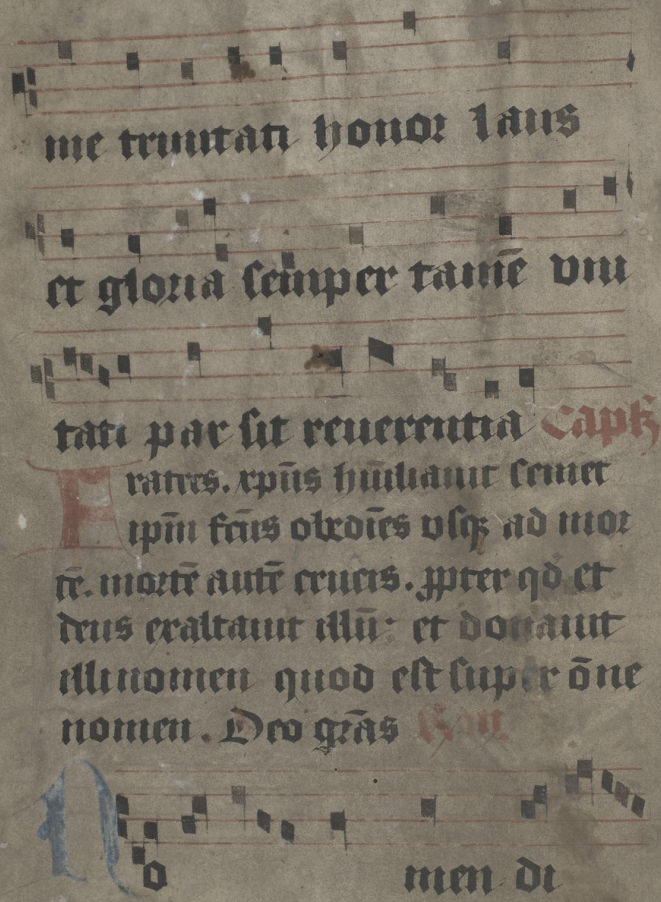 me trinitati honor laus
et gloria semper tamē vni
tati par sit reuerentia Capłz
Fratres. xp̄us hūiliauit semet
ip̄m fc̄us obediēs vsqꝫ ad mor
tē. mortē autē crucis. ꝓpter qd et
deus exaltauit illū: et donauit
illi nomen quod est super ōne
nomen. Deo gr̄as
No men di